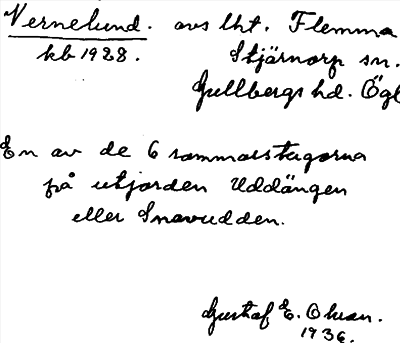 Vernelund. avs lht. Flemma
kb 1928. Stjärnorp sn.
Gullbergs hd. Ögl
En av de 6 sommarstugorna
på utjorden Uddängen
eller Snavudden.
Gustaf E. Olsson.
1936.